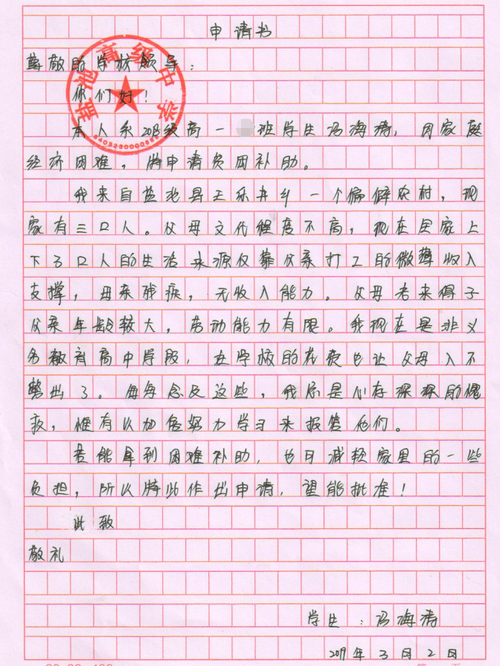 申请书
尊敬的学校领导：
你们好！
本人系2018级高一 班学生冯海涛，因家庭
经济困难，特申请贫困补助。
我来自盐池县王乐井乡一个偏僻农村，现
家有三口人。父母文化程度不高，现在是家上
下3口人的生活来源仅靠父亲打工的微薄收入
支撑，母亲残疾，无收入能力。父母老来得子
父亲年龄较大，劳动能力有限。我现在是非义
务教育高中学段，在学校的花费也让父母入不
敷出了。每每念及这些，我总是心存深深的愧
疚，惟有以加倍努力学习来报答他们。
若能拿到困难补助，也可减轻家里的一些
负担，所以特此作出申请，望能批准！
此致
敬礼
学生：冯海涛
2019年3月2日
盐池高级中学